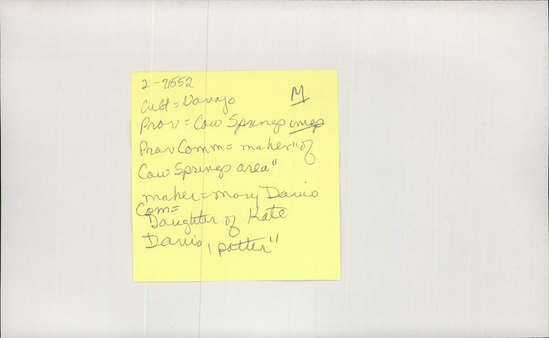 2-7552
M
Cult = Navajo
Prov = Cow Springs
Prov Comm = maker "of
Cow Springs area"
maker = Mary Davis
Com =
Daughter of Kate
Davis, potter"